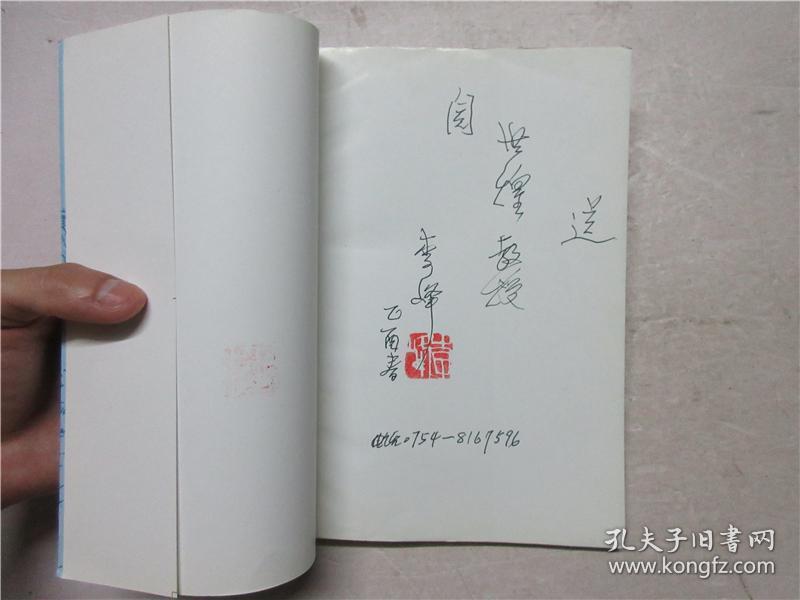 送
世煌教授
阅
李峰
乙酉春
电话0754-8167596
孔夫子旧书网
www.kongfz.com